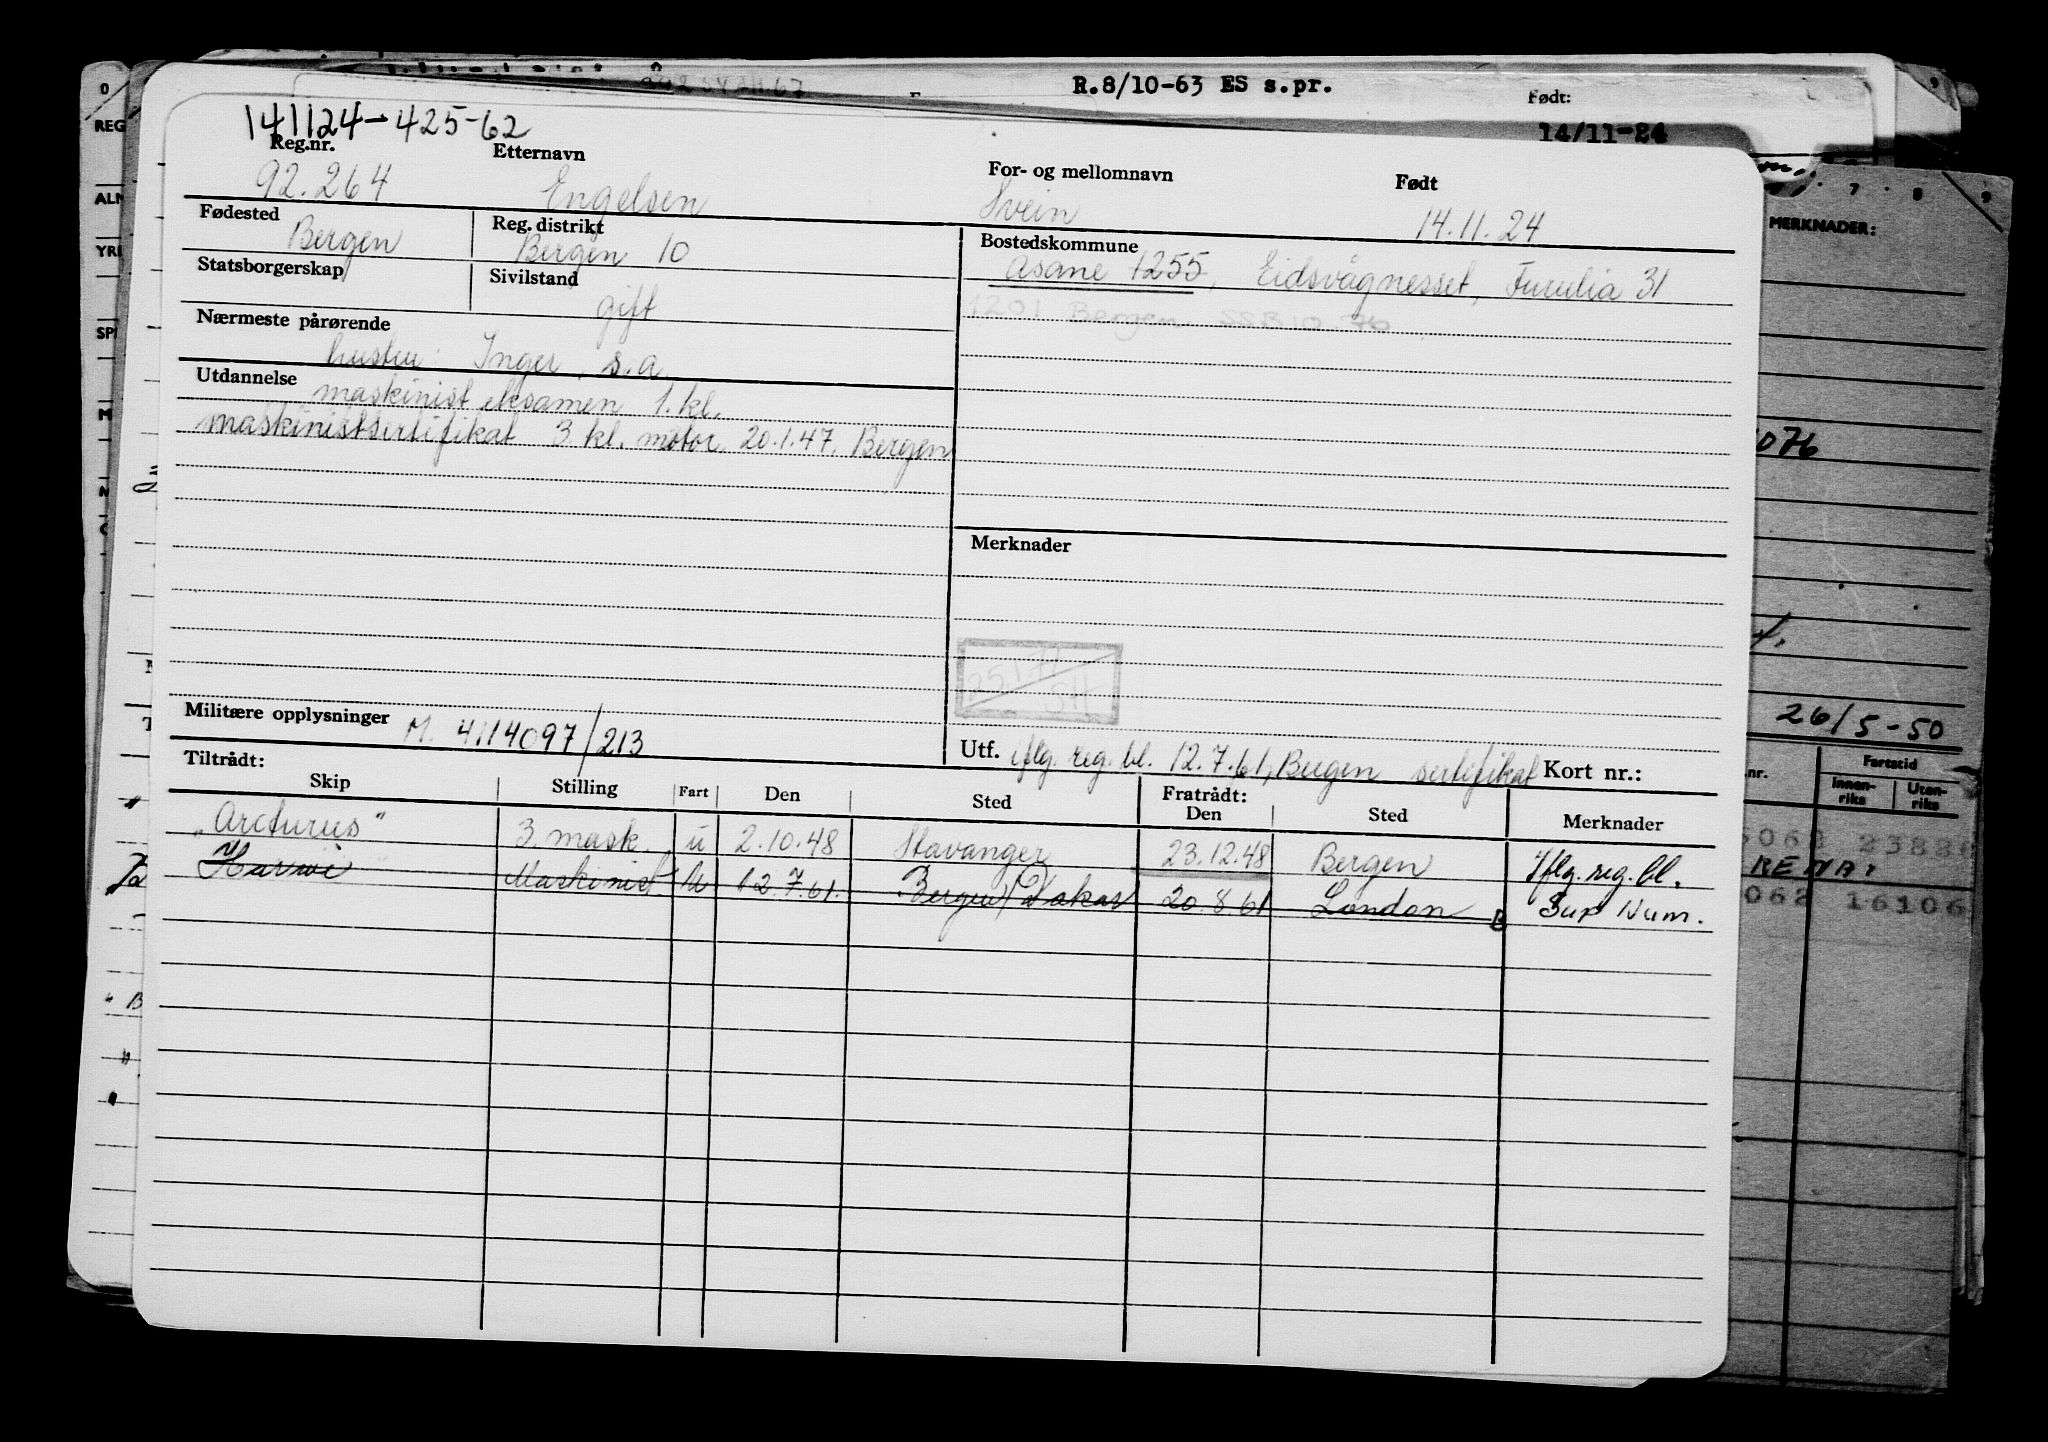 R.8/10-63 ES s.pr.
Født:
14/11-24
141124-425-62
Reg.nr. Etternavn For- og mellomnavn Født
92.264 Engelsen Svein 14.11.24
Fødested Reg. distrikt Bostedskommune
Bergen Bergen 10 Åsane 1255, Eidsvågnesset, Furulia 31
Statsborgerskap Sivilstand
gift 1201 Bergen SSB 10.76
Nærmeste pårørende
hustru: Inger, s.a.
Utdannelse
maskinist eksamen 1.kl.
maskinistsertifikat 3 kl. motor 20.1.47. Bergen
Merknader
25.1.71
SH
Militære opplysninger M. 4114097/213
Utf. iflg. reg. bl. 12.7.61, Bergen sertifikat Kort nr.:
Tiltrådt: Fratrådt:
Skip Stilling Fart Den Sted Den Sted Merknader
"Arcturus" 3. mask. u 2.10.48 Stavanger 23.12.48 Bergen iflg. reg. bl.
Maskinist U 12.7.61. Bergen/Dakar 20.8.61 London B Sup Num.
MERKNADER:
26/5-50
Fartstid
nr. Innen-riks Uten-riks
16106